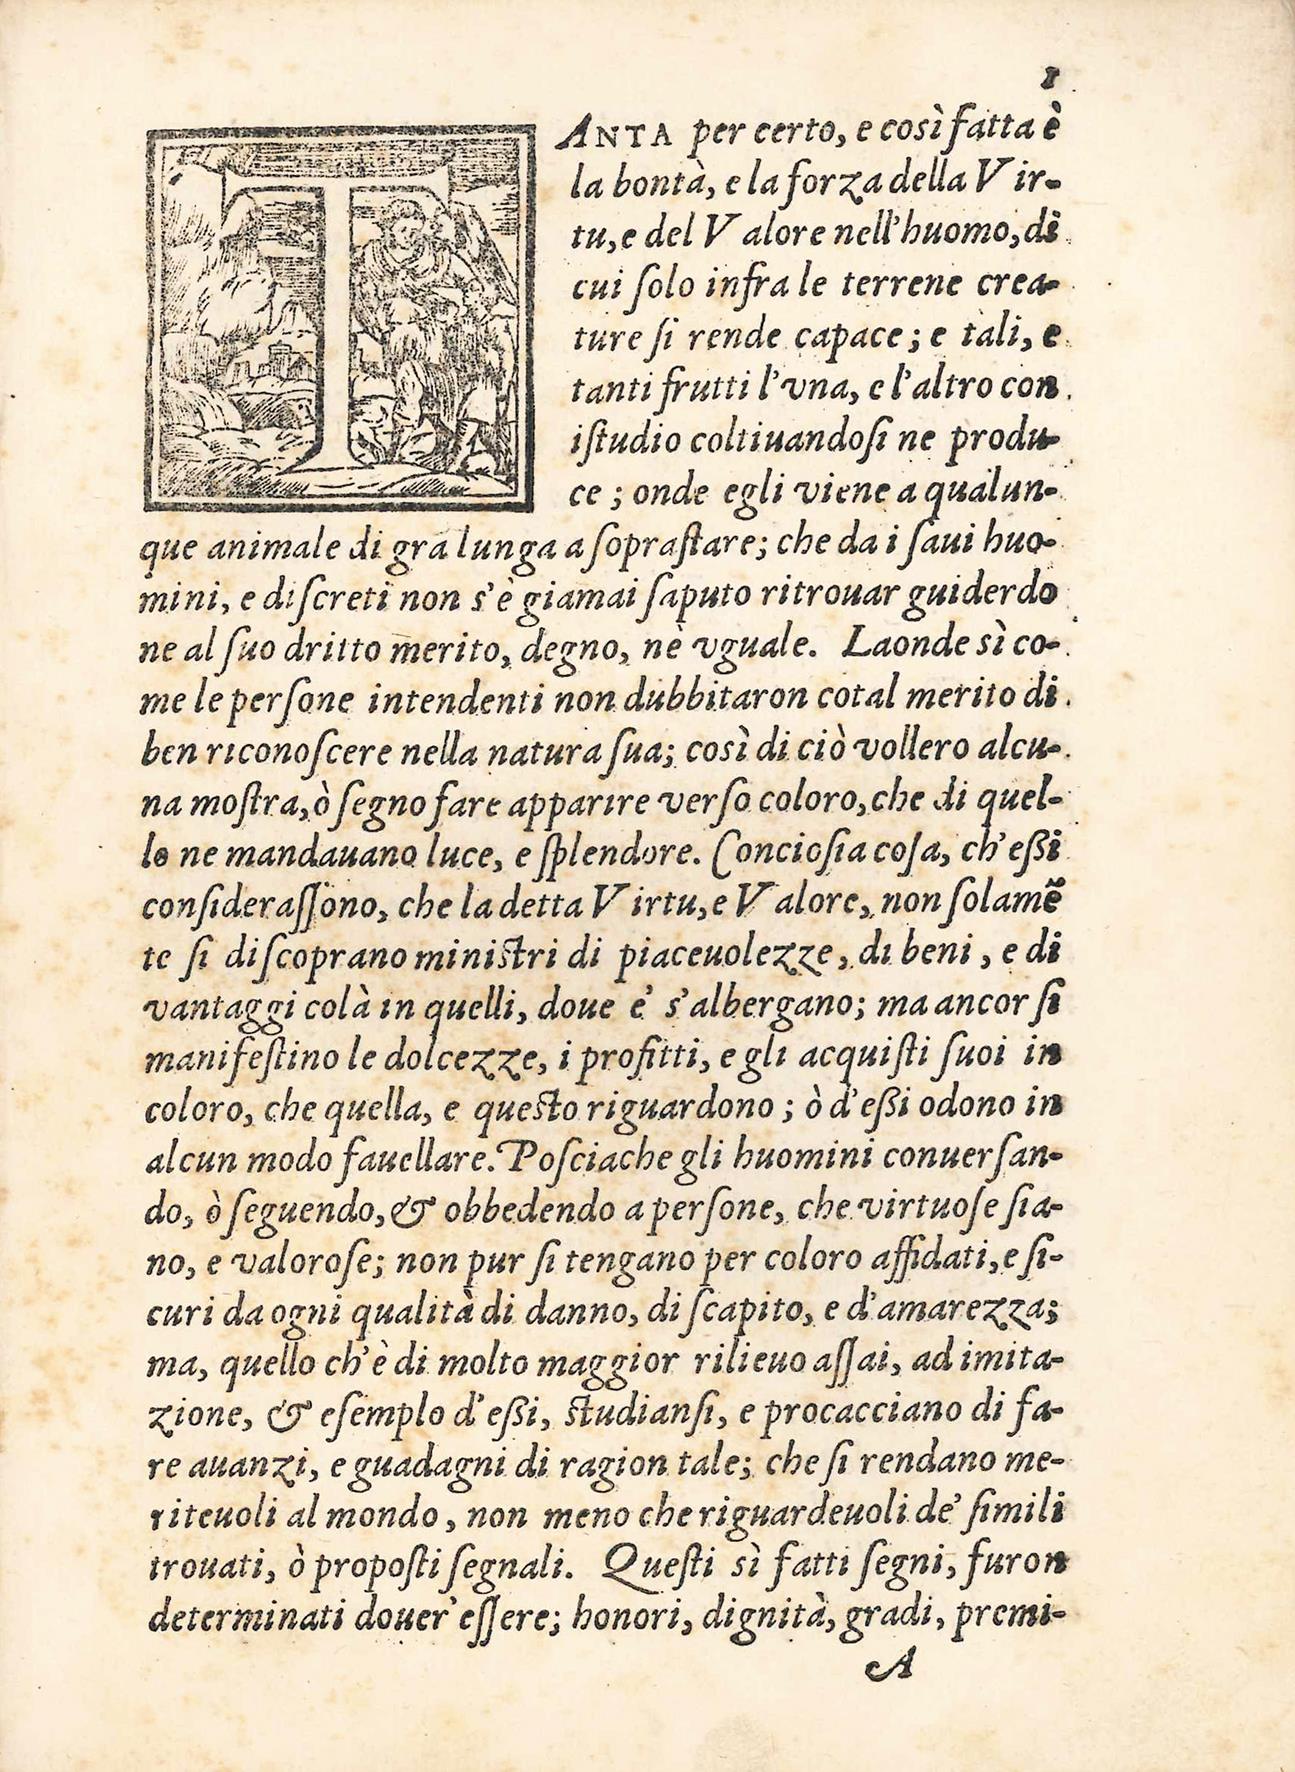 1
TANTA per certo, e così fatta è
la bontà, e la forza della Vir-
tu, e del Valore nell'huomo, di
cui ſolo infra le terrene crea-
ture ſi rende capace; e tali, e
tanti frutti l'vna, e l'altro con
iſtudio coltiuandoſi ne produ-
ce; onde egli viene a qualun-
que animale di gra lunga a ſopraſtare; che da i ſaui huo-
mini, e diſcreti non s'è giamai ſaputo ritrouar guiderdo
ne al ſuo dritto merito, degno, nè vguale. Laonde sì co-
me le perſone intendenti non dubbitaron cotal merito di
ben riconoſcere nella natura ſua; così di ciò vollero alcu-
na moſtra, ò ſegno fare apparire verſo coloro, che di quel-
lo ne mandauano luce, e ſplendore. Concioſia coſa, ch'eßi
conſideraſſono, che la detta Virtu, e Valore, non ſolamẽ
te ſi diſcoprano miniſtri di piaceuolezze, di beni, e di
vantaggi colà in quelli, doue e' s'albergano; ma ancor ſi
manifeſtino le dolcezze, i profitti, e gli acquiſti ſuoi in
coloro, che quella, e queſto riguardono; ò d'eßi odono in
alcun modo fauellare. Poſciache gli huomini conuerſan-
do, ò ſeguendo, & obbedendo a perſone, che virtuoſe ſia-
no, e valoroſe; non pur ſi tengano per coloro affidati, e ſi-
curi da ogni qualità di danno, di ſcapito, e d'amarezza;
ma, quello ch'è di molto maggior rilieuo aſſai, ad imita-
zione, & eſemplo d'eßi, ſtudianſi, e procacciano di fa-
re auanzi, e guadagni di ragion tale; che ſi rendano me-
riteuoli al mondo, non meno che riguardeuoli de' ſimili
trouati, ò propoſti ſegnali. Queſti sì fatti ſegni, furon
determinati douer'eſſere; honori, dignità, gradi, premi-
A